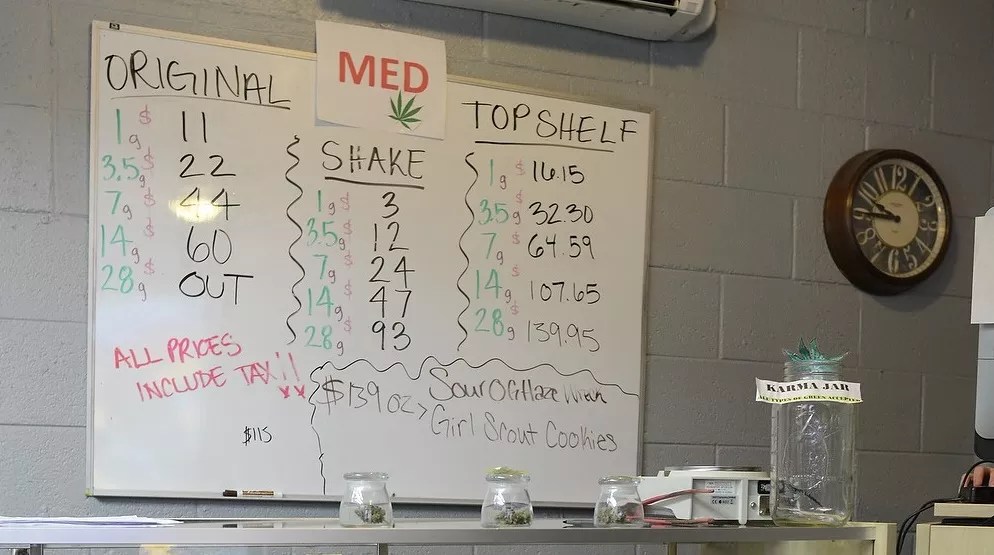 MED
ORIGINAL
1g $ 11
3.5g $ 22
7g $ 44
14g $ 60
28g $ OUT
ALL PRICES
INCLUDE TAX!!
$115
SHAKE
1g $ 3
3.5g $ 12
7g $ 24
14g $ 47
28g $ 93
TOP SHELF
1g $ 16.15
3.5g $ 32.30
7g $ 64.59
14g $ 107.65
28g $ 139.95
$139 oz > Sour OG Haze
Girl Scout Cookies
KARMA JAR
ALL TYPES OF GREEN ACCEPTED